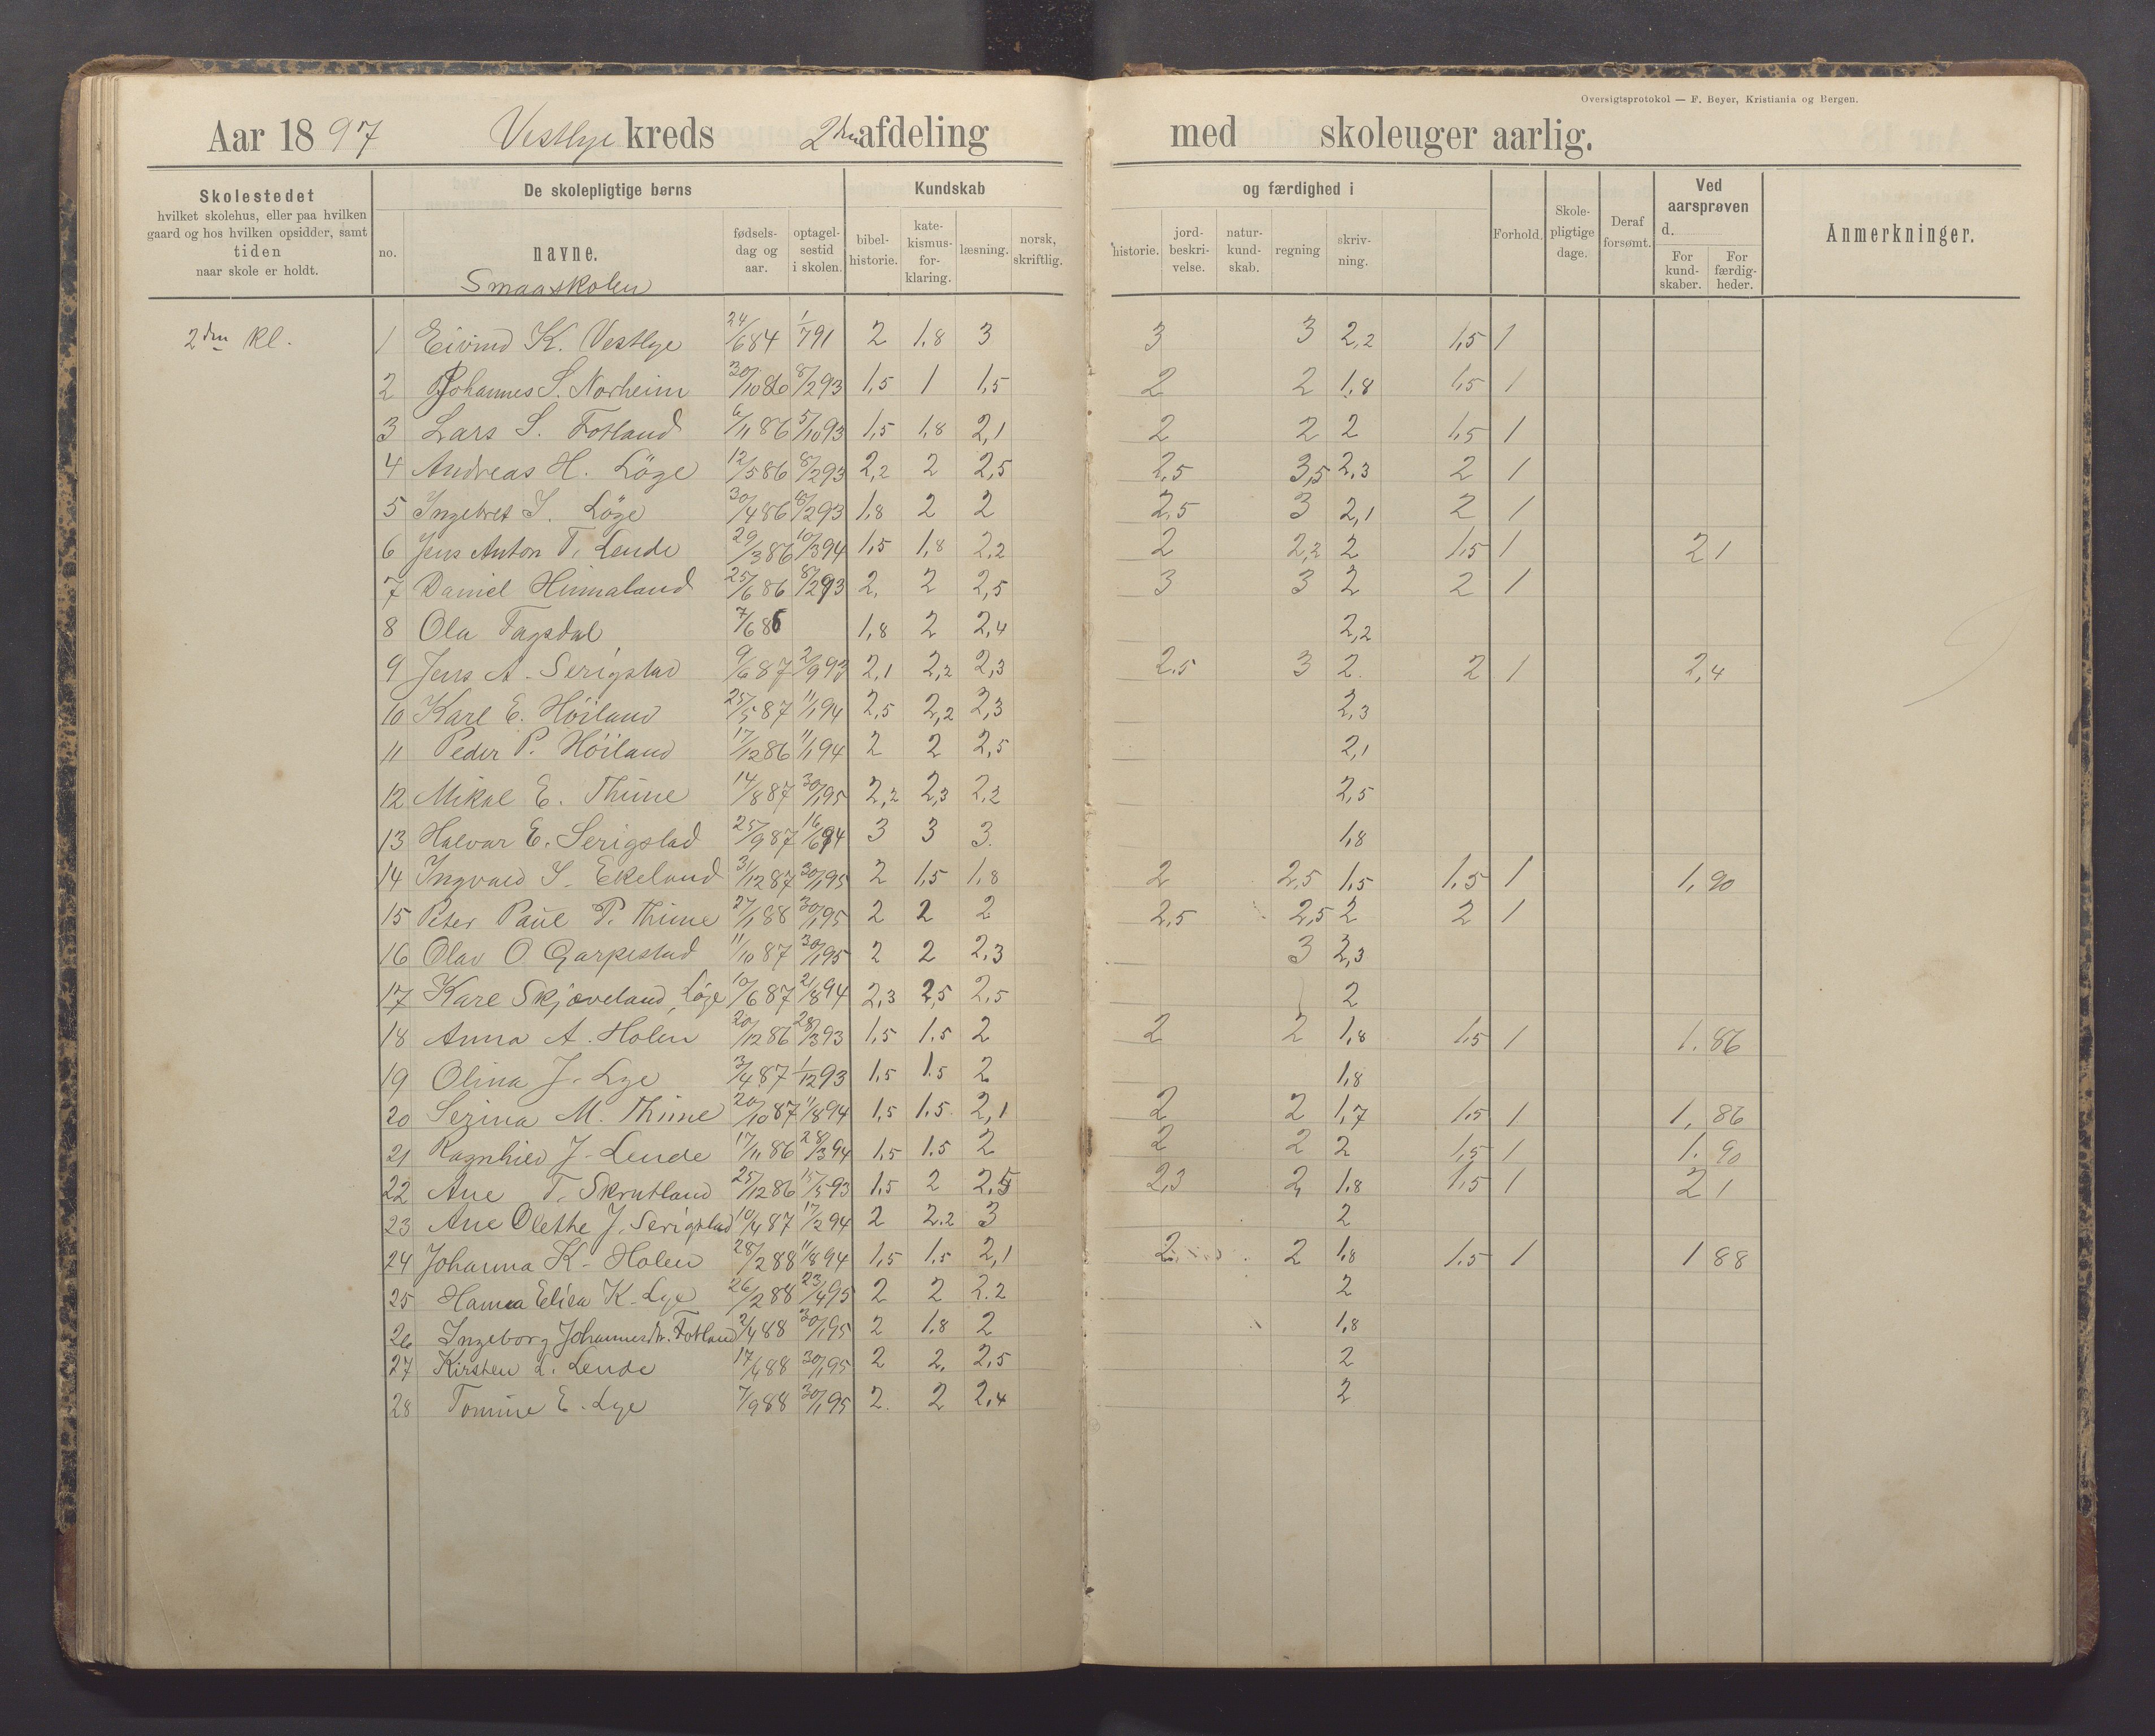 Oversigtsprotokol — F. Beyer, Kristiania og Bergen.
Aar 1897 Vestlye kreds 2den afdeling med skoleuger aarlig.
Skolestedet
hvilket skolehus, eller paa hvilken
gaard og hos hvilken opsidder, samt
tiden
naar skole er holdt.
De skolepligtige børns
no.
navne.
fødsels-
dag og
aar.
optagel-
sestid
i skolen.
Kundskab
bibel-
historie.
kate-
kismus-
for-
klaring.
læsning.
norsk,
skriftlig.
og færdighed i
historie.
jord-
beskri-
velse.
natur-
kund-
skab.
regning
skriv-
ning.
Forhold.
Skole-
pligtige
dage.
Deraf
forsømt.
Ved
aarsprøven
d.
For
kund-
skaber.
For
færdig-
heder.
Anmerkninger.
Smaaskolen
2den kl. 1 Eivind K. Vestlye 24/6 84 1/7 91 2 1,8 3 3 3 2,2 1,5 1
2 Johannes S. Norheim 30/10 86 8/2 93 1,5 1 1,5 2 2 1,8 1,5 1
3 Lars S. Fotland 6/11 86 5/10 93 1,5 1,8 2,1 2 2 2 1,5 1
4 Andreas H. Löge 12/5 86 8/2 93 2,2 2 2,5 2,5 3,5 2,3 2 1
5 Ingebret I. Löge 30/4 86 8/2 93 1,8 2 2 2,5 3 2,1 2 1
6 Jens Anton T. Lende 29/3 86 10/3 94 1,5 1,8 2,2 2 2,2 2 1,5 1 2 1
7 Daniel Hinnaland 25/6 86 8/2 93 2, 2 2,5 3 3 2 2 1
8 Ola Tagsdal 7/6 86 1,8 2 2,4 2,2
9 Jens A. Serigstad 9/6 87 2/9 93 2,1 2,2 2,3 2,5 3 2. 2 1 2,4
10 Karl E. Höiland 25/5 87 11/1 94 2,5 2,2 2,3 2,3
11 Peder P. Höiland 17/12 86 11/1 94 2 2 2,5 2,1
12 Mikal E. Thime 14/8 87 30/1 95 2,2 2,3 2,2 2,5
13 Halvar E. Serigstad 25/9 87 16/6 94 3 3 3. 1,8
14 Ingvald S. Ekeland 31/12 87 30/1 95 2 1,5 1,8 2 2,5 1,5 1,5 1 1,90
15 Peter Paul P. Thime 27/1 88 30/1 95 2 2 2 2,5 2,5 2 2 1
16 Olav O Garpestad 11/10 87 30/1 95 2 2 2,3 3 2,3
17 Karl Skjæveland, Löge 10/6 87 21/8 94 2,3 2,5 2,5 2
18 Anna A. Holen 20/12 86 28/3 93 1,5 1.5 2 2 2 1,8 1,5 1 1.86
19 Olina J. Lye 3/4 87 1/12 93 1,5 1.5 2 1,8
20 Serina M. Thime 20/10 87 11/8 94 1,5 1.5. 2,1 2 2 1,7 1,5 1 1,86
21 Ragnhild J. Lende 17/11 86 28/3 94 1,5 1.5 2 2 2 2 1,5 1 1.90
22 Ane T. Skrutland 25/12 86 15/5 93 1,5 2 2,5 2,3 2, 1,8 1,5 1 2 1
23 Ane Olethe J. Serigstad 10/4 87 17/2 94 2 2.2 3 2
24 Johanna K. Holen 28/2 88 11/8 94 1,5 1,5 2,1 2 2 1,8 1.5 1 1 88
25 Hanna Elisa K. Lye 26/2 88 23/4 95 2 2 2.2 2
26 Ingeborg Johannesdr. Fotland 2/4 88 30/1 95 2 1.8 2 1,8
27 Kirsten L. Lende 17/4 88 30/1 95 2 2, 2,5 2
28 Tomine E. Lye 7/9 88 30/1 95 2. 2 2,4 2